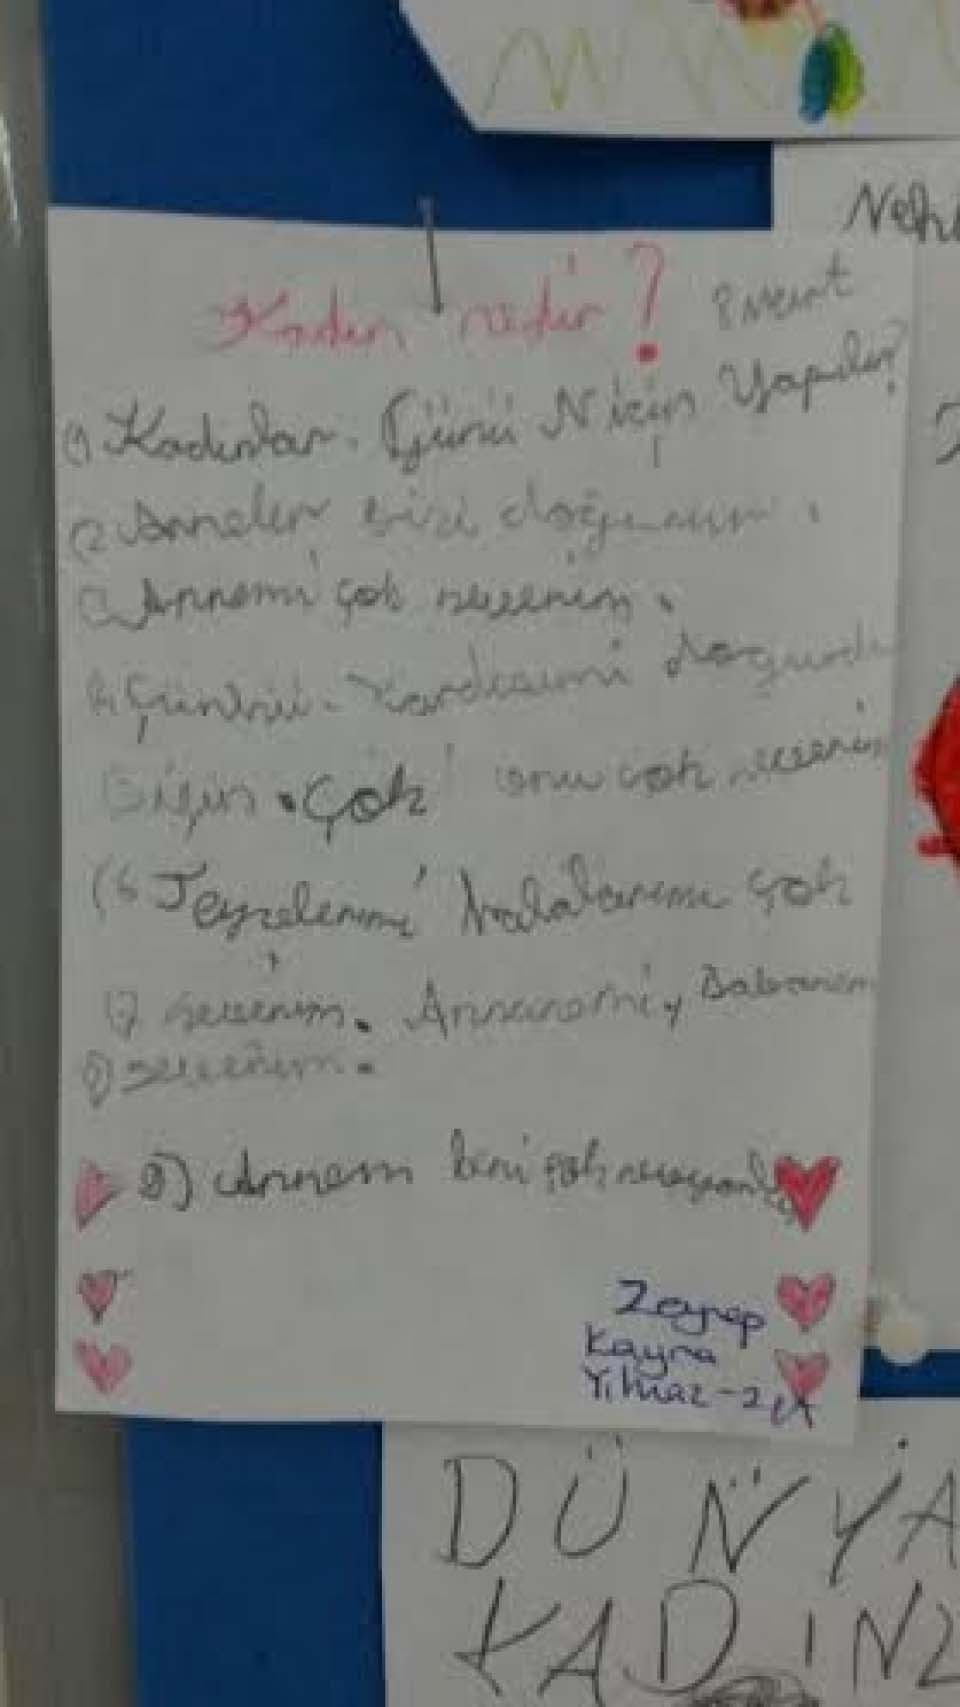 Nehi
Kadın nedir?
1) Kadınlar. Günü Niçin Yapılır?
(2 Anneler bizi doğurur.
Annemi çok severim.
Çünkü. Kardeşimi doğurdu
için. Çok onu çok severim
(6 Teyzelerimi halalarımı çok
severim. Annanemi, Babanem
8) severim.
8) Annem beni çok
Zeynep
Kayra
Yılmaz-2/A
DÜNYA
KADINL